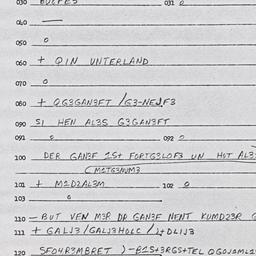 030 BUCFES 031 0
040 —
050 0
060 + QIN UNTERLAND
070 0
080 + QG3GAN3FT /G3-NEJF3
090 SI HEN AL3S G3GAN3FT
091 0 092 0
100 DER GAN3F 1S+ FORTG3LOF3 UN HOT AL3S
(M1TG3NUM3
101 + M1D2AL3M 102 0
103 0
110 —BUT VEN M3R DR GAN3F NENT KUMD23R G
111 + GALJ3/GALJ3HOLC /2+DL1J3
120 SFO4R3MBRET )-B1S+3RGS+TEL